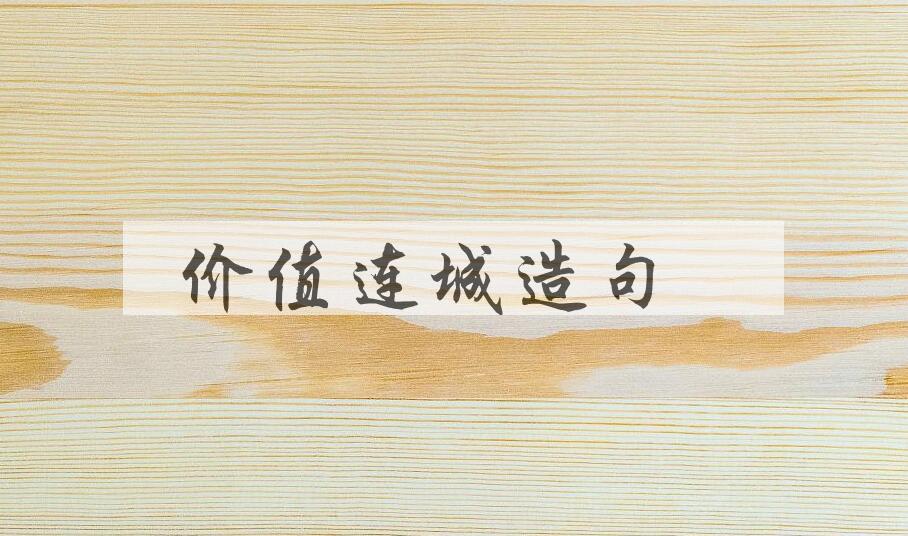 价值连城造句